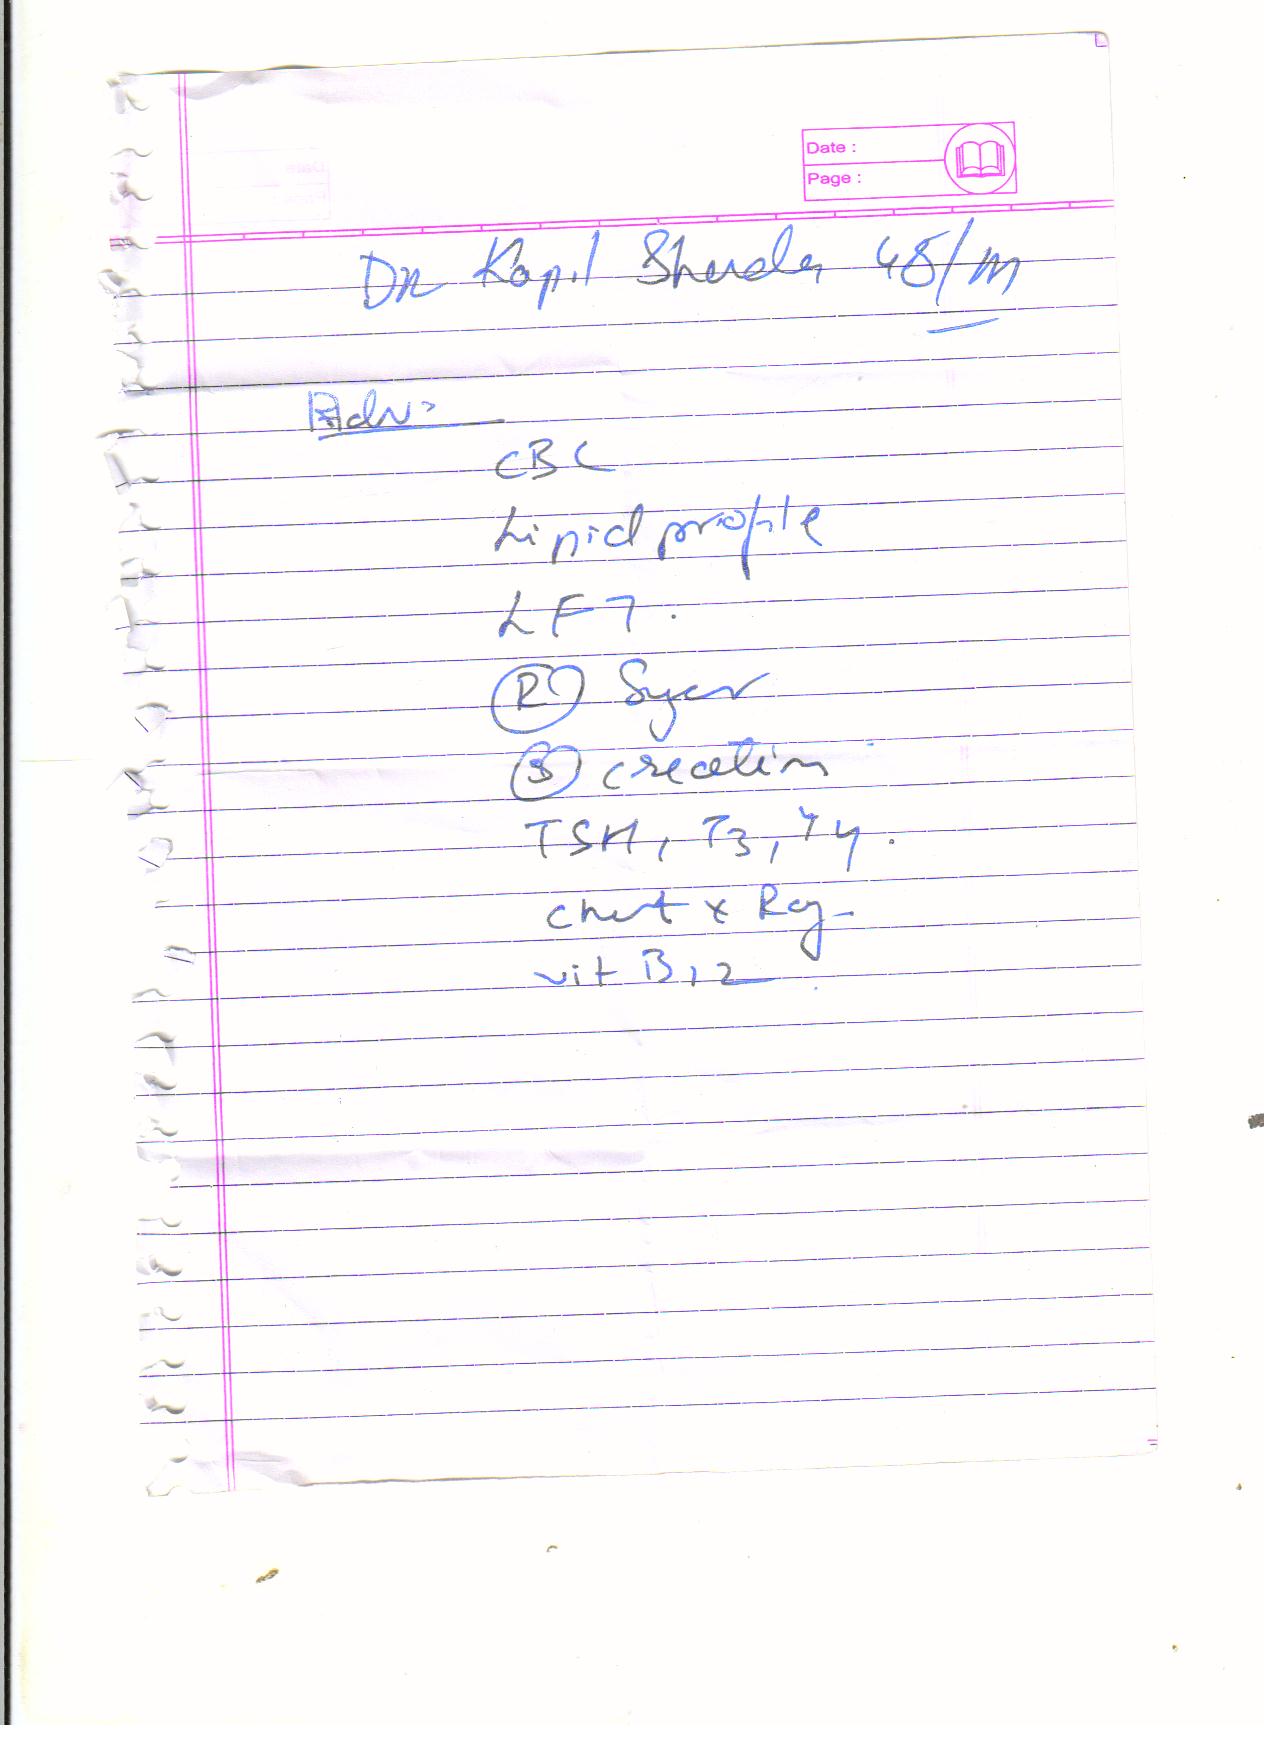 Date :
Page :
Dr Kapil 45/m
Adv:
CBC
Lipid profile
LFT.
(R) Sugar
(S) creatin
TSH, T3, T4.
chest x Ray
vit B12